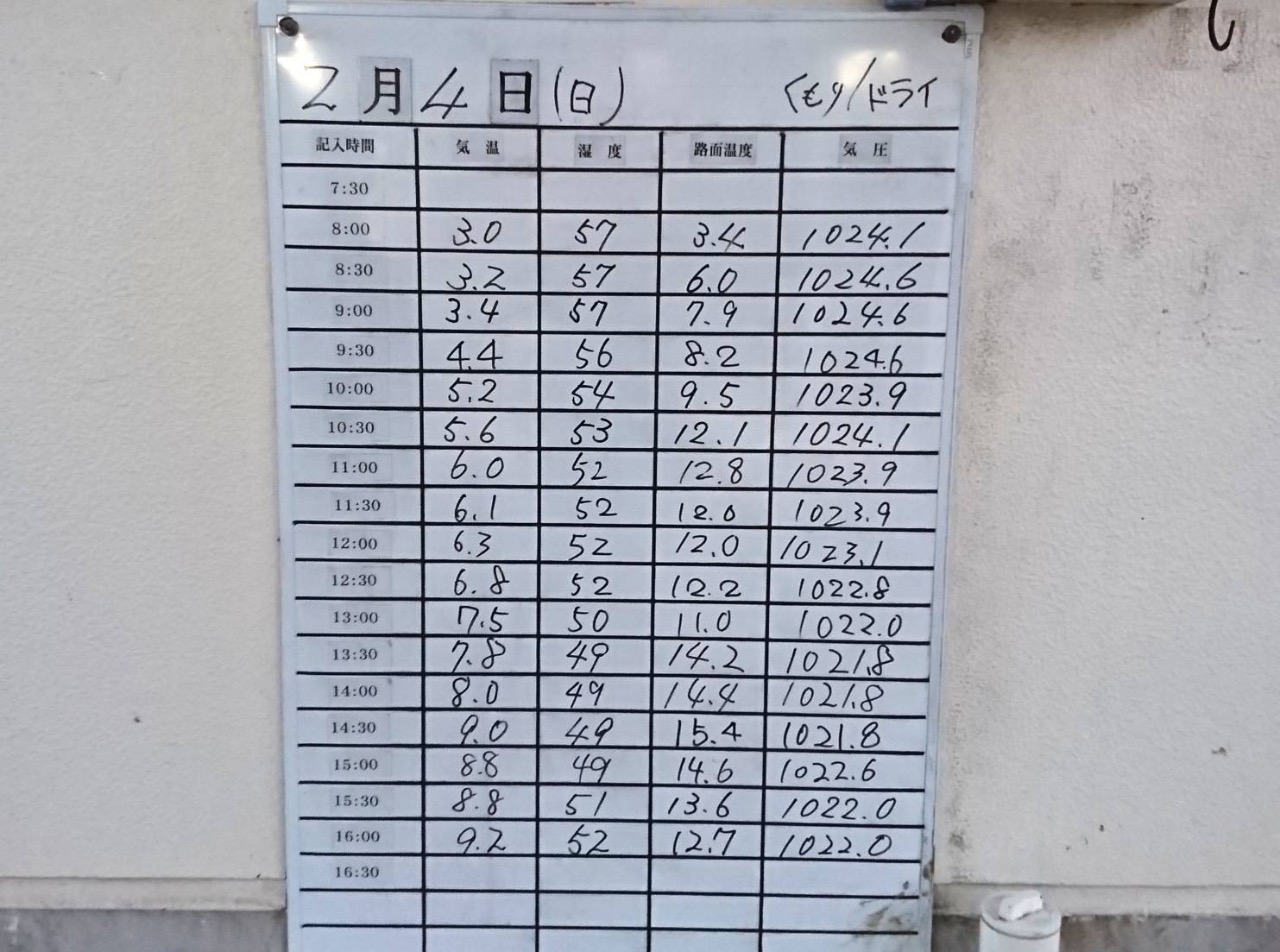 2月4日(日) くもり/ドライ
記入時間 気温 湿度 路面温度 気圧
7:30
8:00 3.0 57 3.4 1024.1
8:30 3.2 57 6.0 1024.6
9:00 3.4 57 7.9 1024.6
9:30 4.4 56 8.2 1024.6
10:00 5.2 54 9.5 1023.9
10:30 5.6 53 12.1 1024.1
11:00 6.0 52 12.8 1023.9
11:30 6.1 52 12.0 1023.9
12:00 6.3 52 12.0 1023.1
12:30 6.8 52 12.2 1022.8
13:00 7.5 50 11.0 1022.0
13:30 7.8 49 14.2 1021.8
14:00 8.0 49 14.4 1021.8
14:30 9.0 49 15.4 1021.8
15:00 8.8 49 14.6 1022.6
15:30 8.8 51 13.6 1022.0
16:00 9.2 52 12.7 1022.0
16:30